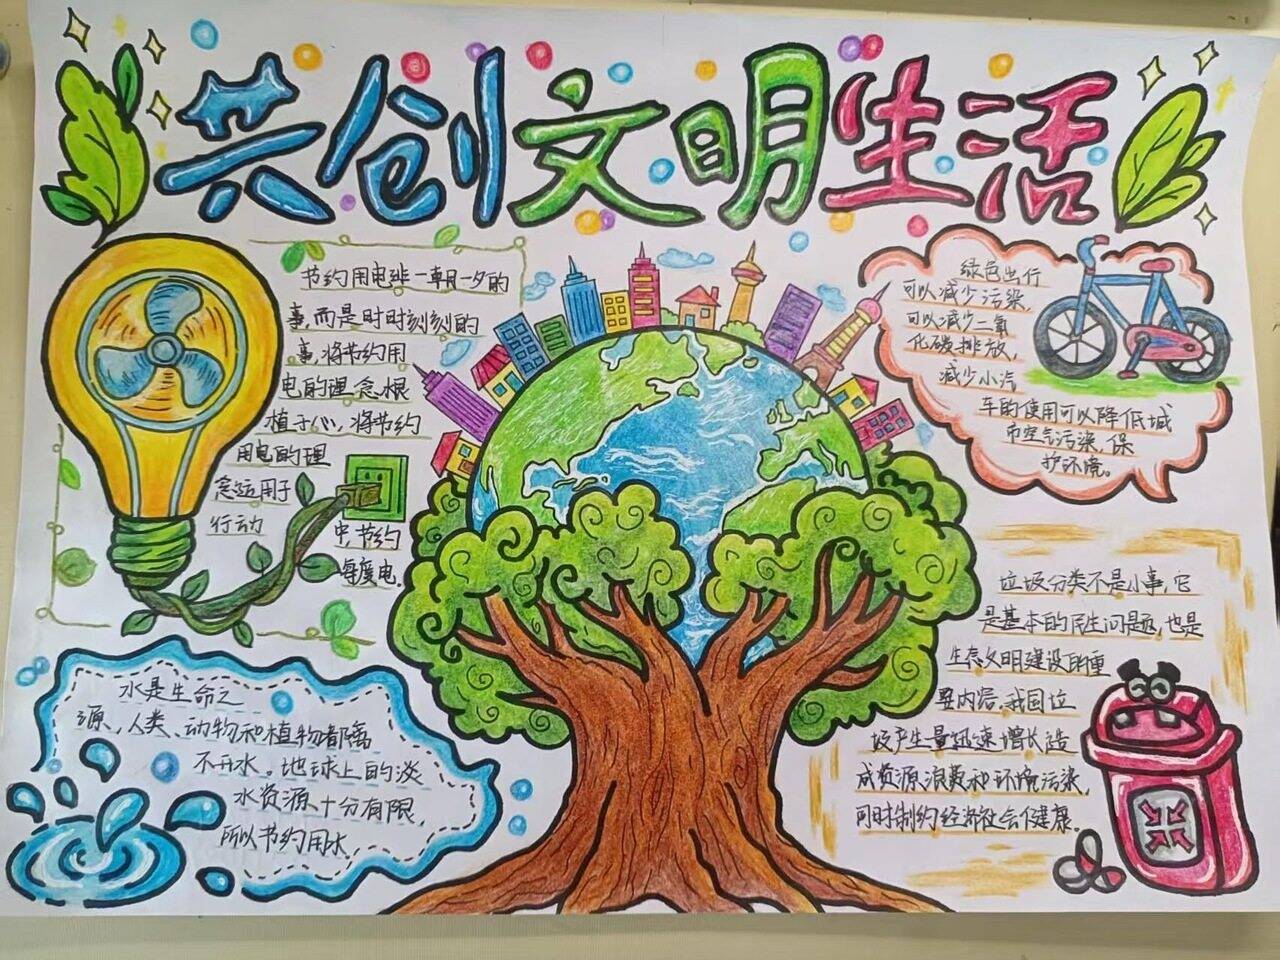 共创文明生活
节约用电非一朝一夕的
事,而是时时刻刻的
事,将节约用
电的理念根
植于心,将节约
用电的理
念运用于
行动
中,节约
每度电。
绿色出行
可以减少污染,
可以减少二氧
化碳排放,
减少小汽
车的使用可以降低城
市空气污染,保
护环境。
水是生命之
源,人类、动物和植物都离
不开水。地球上的淡
水资源十分有限,
所以节约用水
垃圾分类不是小事,它
是基本的民生问题,也是
生态文明建设的重
要内容,我国垃
圾产生量迅速增长造
成资源浪费和环境污染,
同时制约经济社会健康。